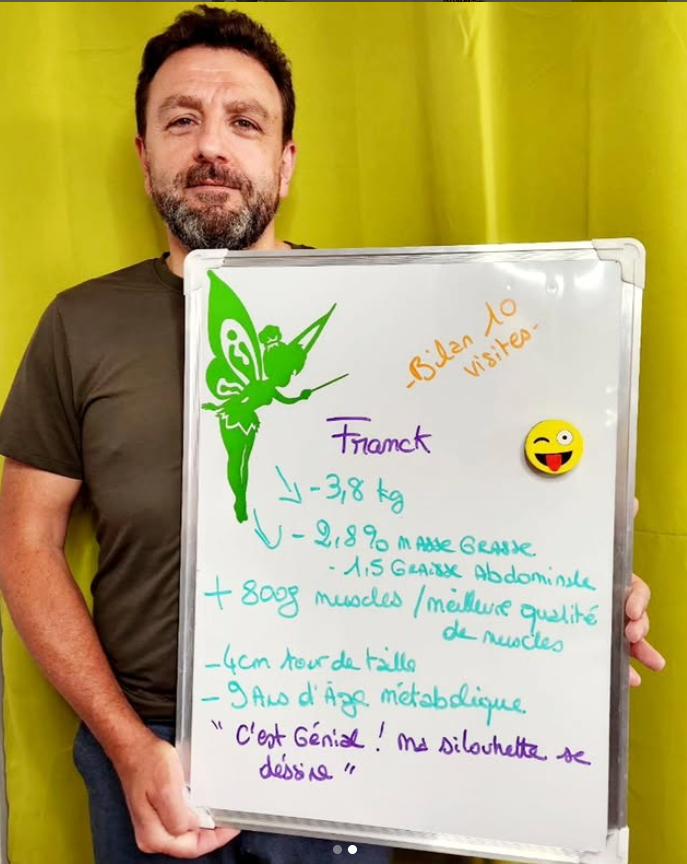 -Bilan 10
visites-
Franck
↘ -3,8 kg
↘ - 2,8% MASSE GRASSE
- 1,5 GRAISSE Abdominale
+ 800g muscles / meilleure qualité
de muscles
-4cm tour de taille
- 9 Ans d'Âge métabolique
" C'est Génial ! Ma silouhette se
déssine "